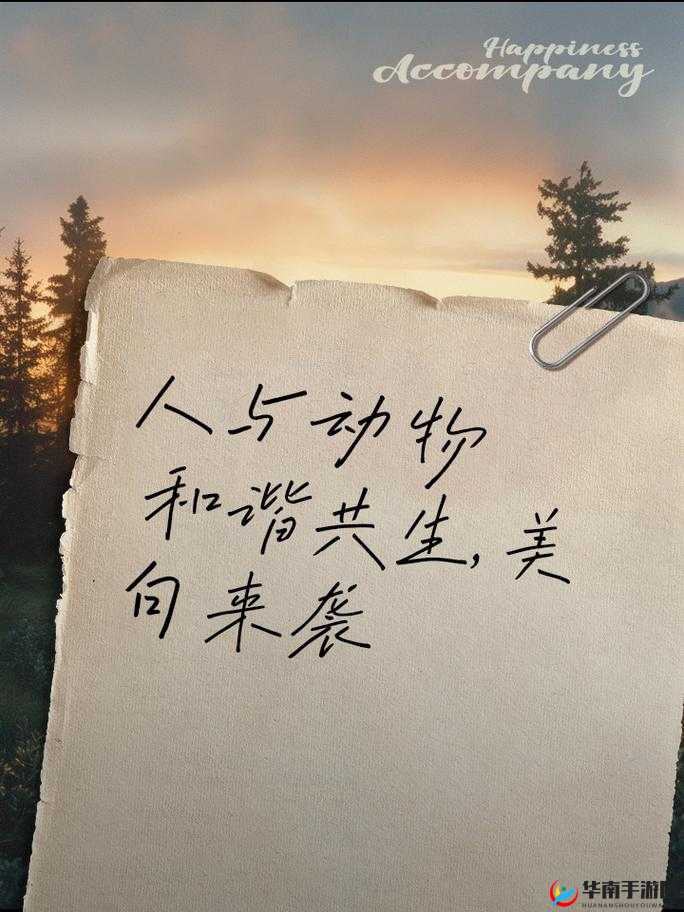 Happiness
Accompany
人与动物
和谐共生,美
句来袭
华南手游
HUANANSHOUYOUW